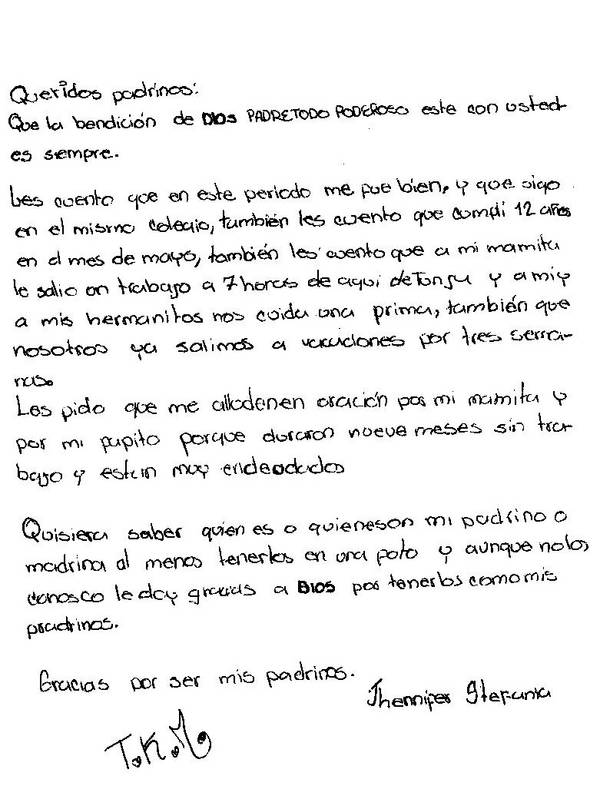 Queridos padrinos:
Que la bendición de DIOS PADRETODO PODEROSO este con usted-
es siempre.
Les cuento que en este periodo me fue bien, y que sigo
en el mismo colegio, también les cuento que cumpli 12 años
en el mes de mayo, también les cuento que a mi mamita
le salio un trabajo a 7 horas de aqui de Tunja y a mi y
a mis hermanitos nos cuida una prima, también que
nosotros ya salimos a vacaciones por tres sema-
nas.
Les pido que me alloden en oración por mi mamita y
por mi papito porque duraron nueve meses sin tra-
bajo y estan muy endeodados
Quisiera saber quien es o quieneson mi padrino o
madrina al menos tenerlos en una foto y aunque no los
conosco le doy gracias a DIOS por tenerlos como mis
padrinos.
Gracias por ser mis padrinos.
Jhennifer Stefania
T.K.M